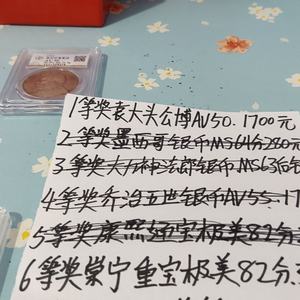 1等奖袁大头公博AV50.1700元
2等奖墨西哥银币MS64分280元
3等奖大万神法郎银币MS63后
4等奖乔治五世银币AV55.17
5等奖康熙通宝极美82分
6等奖崇宁重宝极美82分